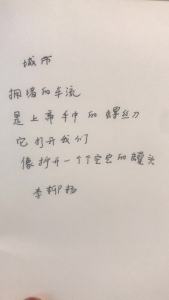 城市
拥堵的车流
是上帝手中的螺丝刀
它打开我们
像打开一个个空空的罐头
李柳杨